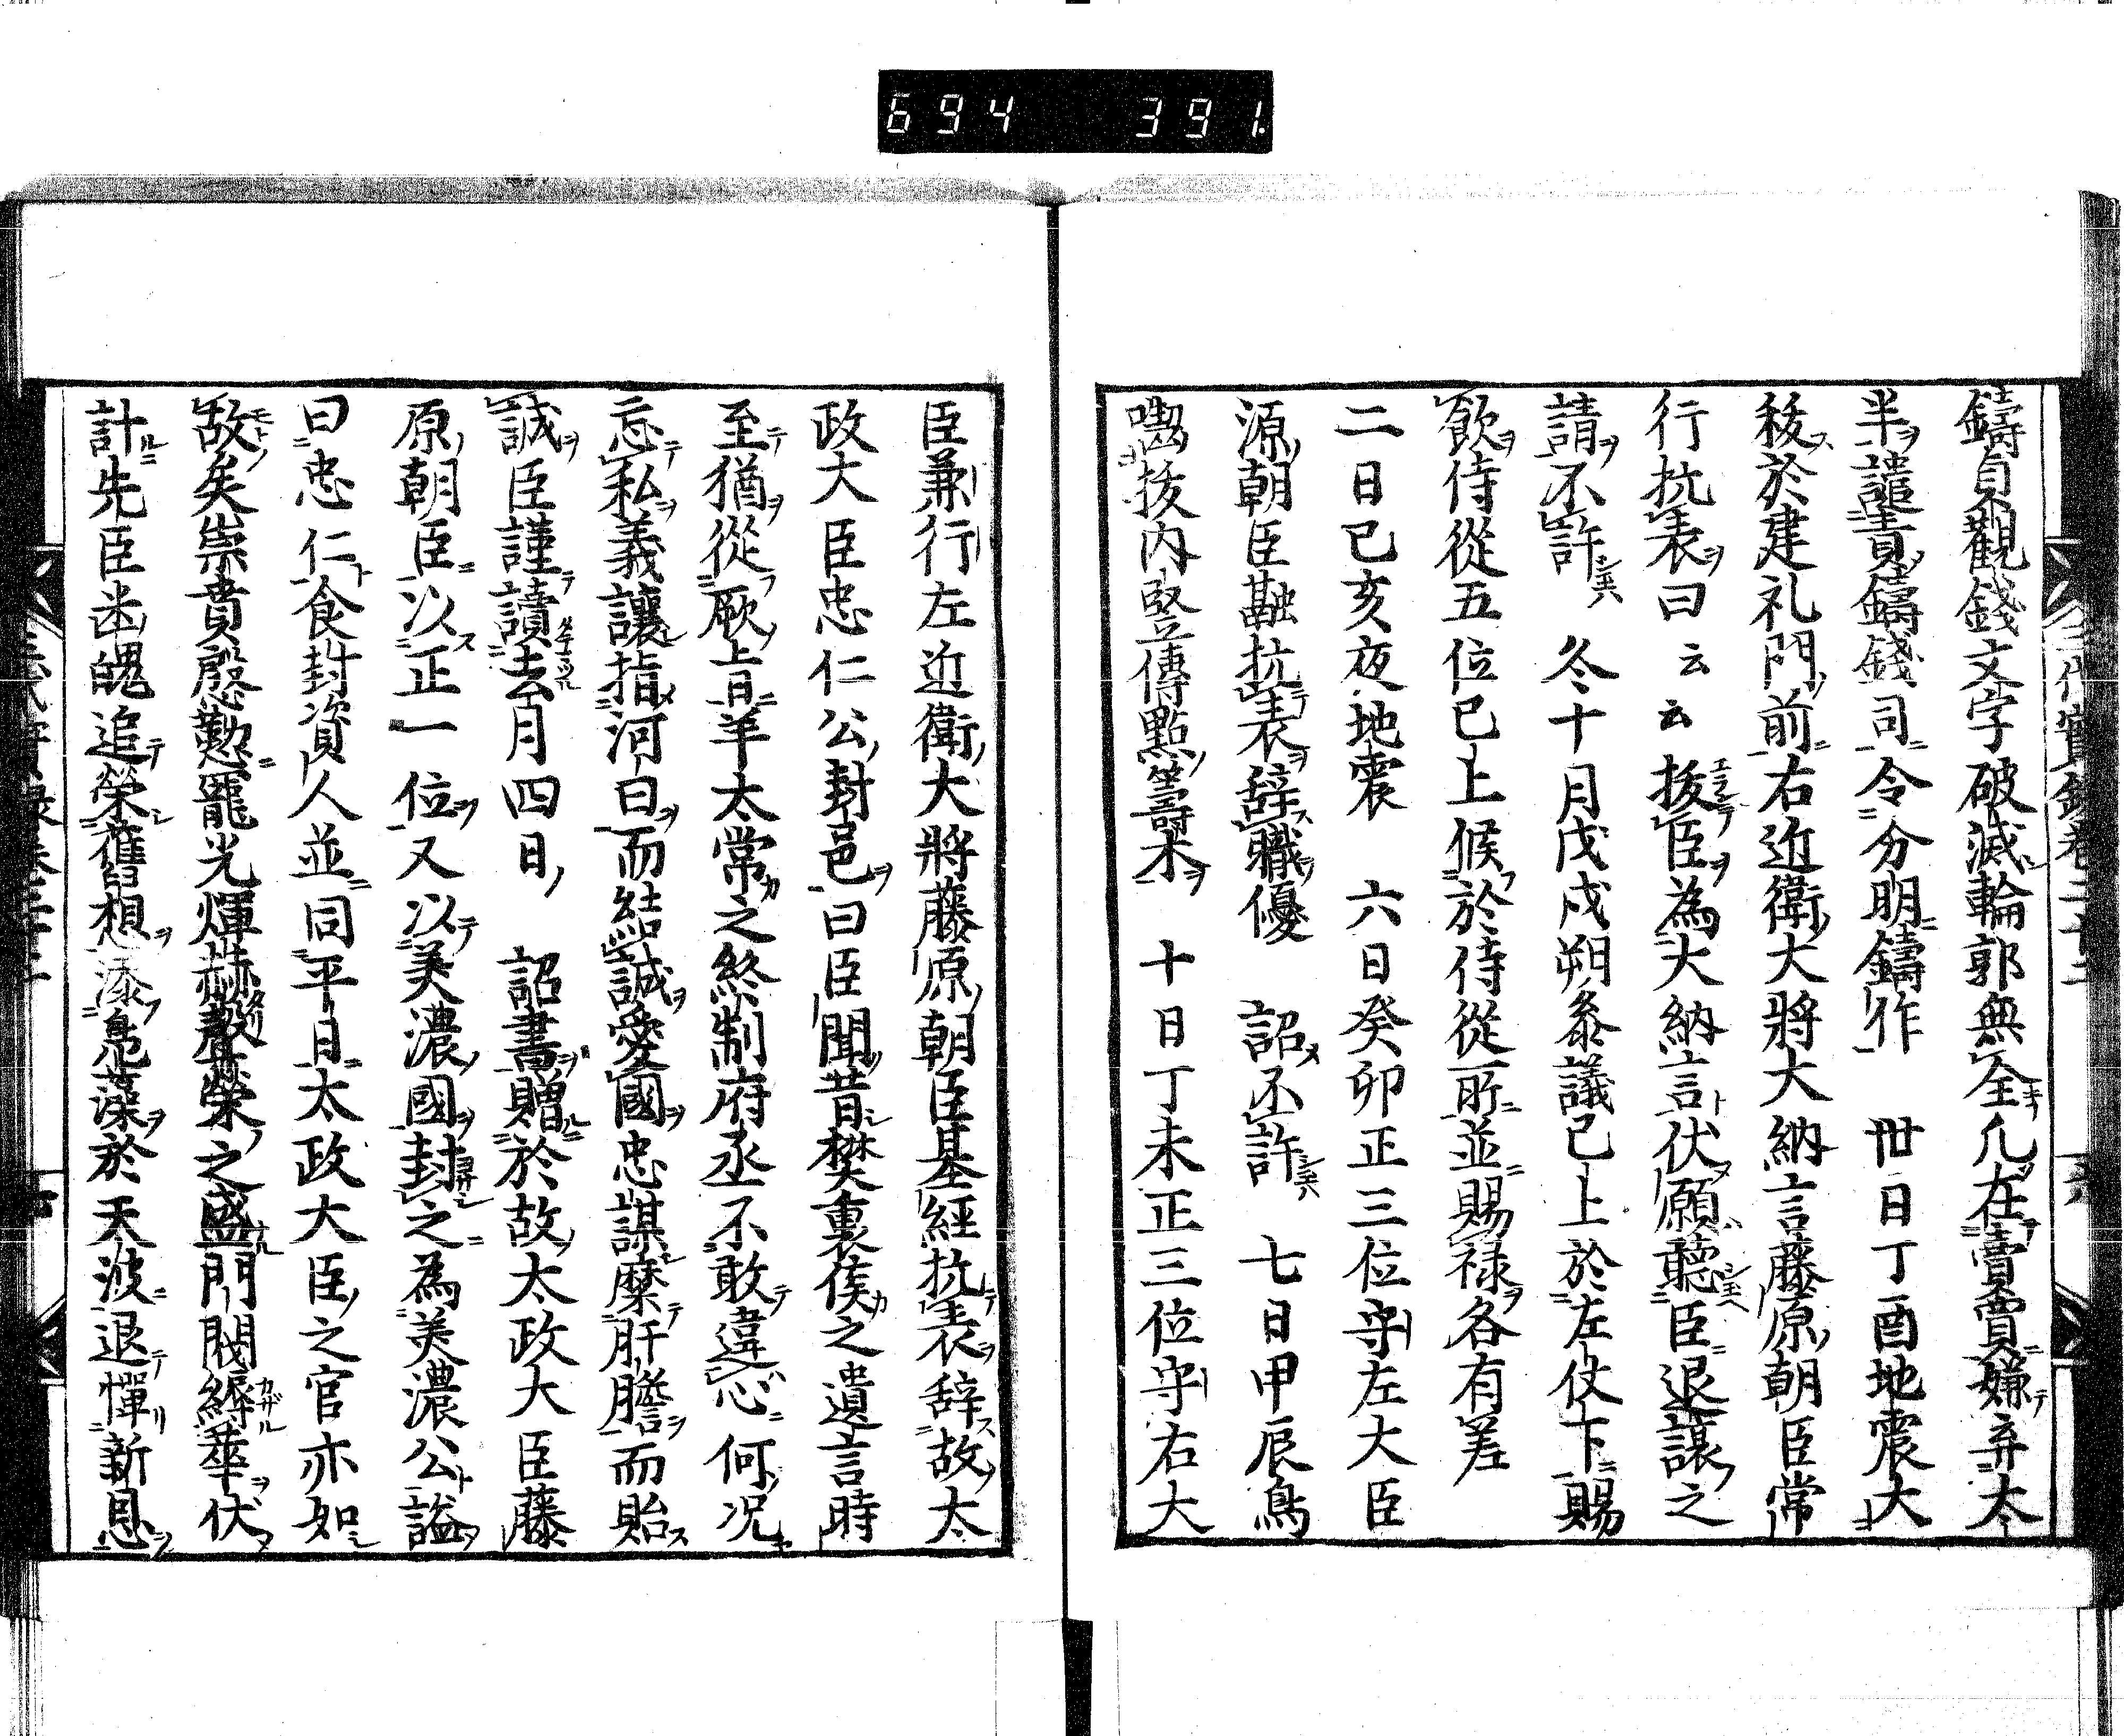 694 391.
鑄貞觀錢文字破滅輪郭無全凡在賣買嫌弃太
半譴責鑄錢司令分明鑄作 丗日丁酉地震大
秡於建礼門前右近衛大將大納言藤原朝臣常
行抗表曰云云抜臣為大納言伏願聽臣退譲之
請不許 冬十月戊戌朔叅議已上於左仗下賜
飲侍從五位已上候於侍從所並賜禄各有差
二日已亥夜地震 六日癸卯正三位守左大臣
源朝臣融抗表辞職優 詔不許 七日甲辰鳥
囓抜内竪傳點籌木 十日丁未正三位守右大
臣兼行左近衛大將藤原朝臣基經抗表辞故太
政大臣忠仁公封邑曰臣聞昔樊重侯之遺言時
至猶從厥旨羊太常之終制府丞不敢違心何况
忘私義讓指河曰而結誠愛國忠謀糜肝膽而貽
誠臣謹讀去月四日 詔書贈於故太政大臣藤
原朝臣以正一位又以美濃國封之為美濃公謚
曰忠仁食封資人並同平日太政大臣之官亦如
故矣崇貴慇懃寵光煇赫聲榮之盛門閥縟華伏
計先臣幽魄追榮舊想添鳧藻於天波退憚新恩